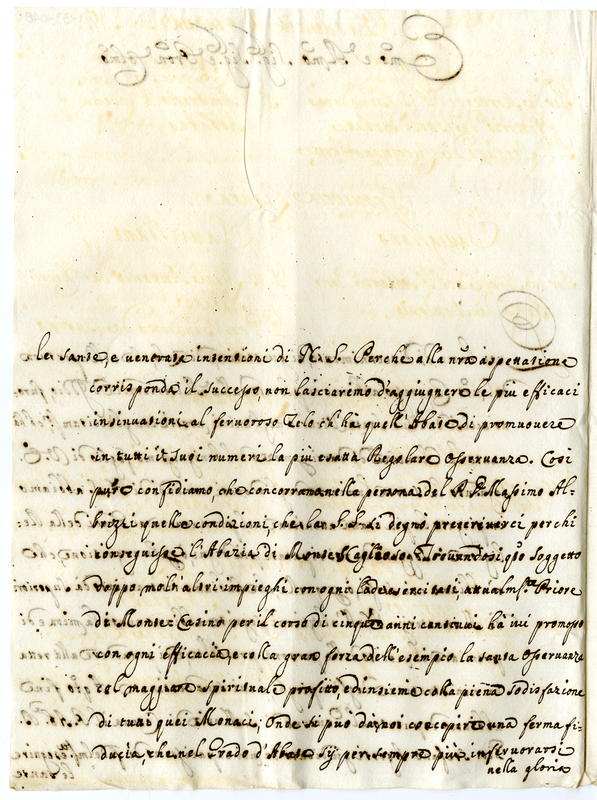 le sante, e venerate intensioni di N. S. Perche alla nrã aspettatione
corrisponda il successo, non lasciaremo d'aggiugnere le più efficaci
insinuationi al fervoroso Zelo ch' ha quell' Abate di promuovere
in tutti i suoi numeri la più esatta Regolare Osservanza. Così
pure confidiamo, che concorrano nella persona del P. Massimo Al-
brizzi quelle condizioni, che la S. S. si degnò prescriverci perchi
conseguisse l'Abazia di Monte Scaglioso. Trovandosi qto soggetto
doppo molti altri impieghi con ogni lode esercitati, attualmte Priore
di Monte Casino per il corso di cinque anni continui ha ivi promosso
con ogni efficacia, e colla gran forza dell'esempio la santa Osservanza
col maggior spirituale profitto, ed insieme colla piena sodisfazione
di tutti quei Monaci; Onde si può da noi concepire una ferma fi-
ducia, che nel Grado d'Abate sij per sempre più infervorarsi
nella gloria